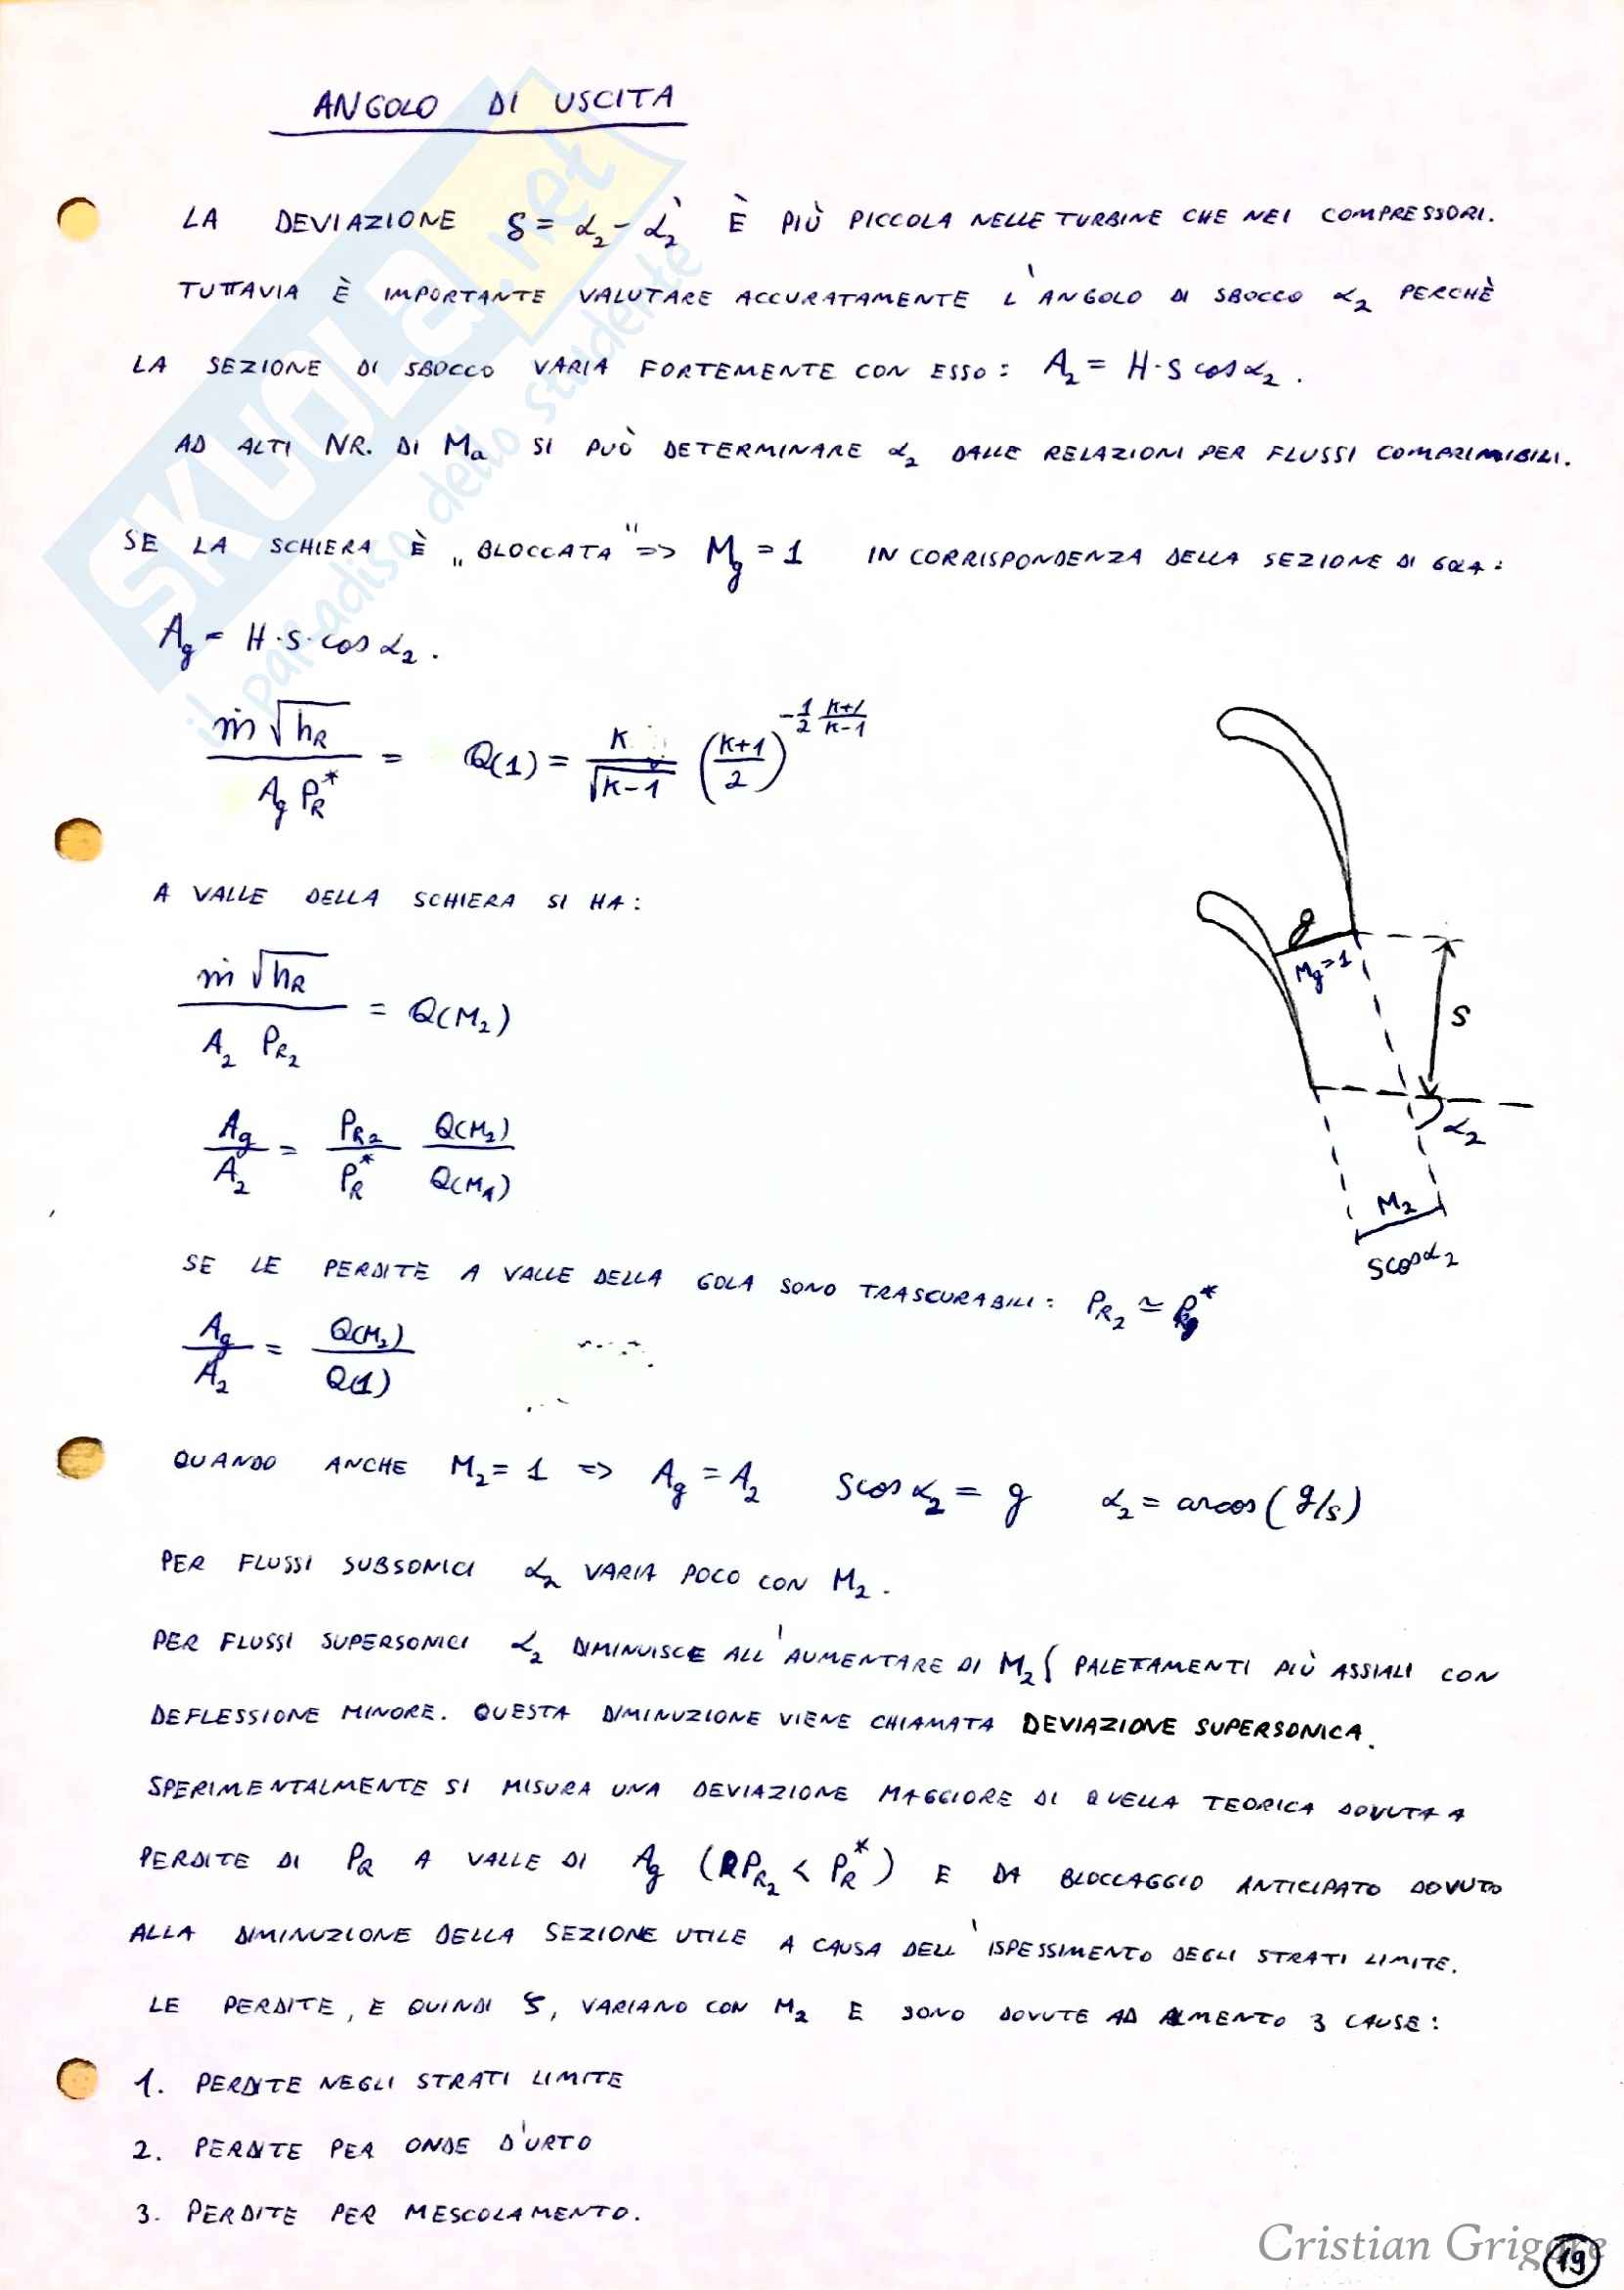 ANGOLO DI USCITA
LA DEVIAZIONE δ = α₂ - α₂' È PIÙ PICCOLA NELLE TURBINE CHE NEI COMPRESSORI.
TUTTAVIA È IMPORTANTE VALUTARE ACCURATAMENTE L'ANGOLO DI SBOCCO α₂ PERCHÈ
LA SEZIONE DI SBOCCO VARIA FORTEMENTE CON ESSO: A₂ = H·S cos α₂.
AD ALTI NR. DI Ma SI PUÒ DETERMINARE α₂ DALLE RELAZIONI PER FLUSSI COMPRIMIBILI.
SE LA SCHIERA È „BLOCCATA" => Mg = 1 IN CORRISPONDENZA DELLA SEZIONE DI GOLA:
Ag = H·S·cos α₂.
ṁ √hR / (Ag PR*) = Q(1) = K/√(K-1) ((K+1)/2)^(-1/2 (K+1)/(K-1))
A VALLE DELLA SCHIERA SI HA:
ṁ √hR / (A₂ PR₂) = Q(M₂)
Ag/A₂ = PR₂/PR* Q(M₂)/Q(M₁)
g
Mg=1
S
α₂
M₂
S cos α₂
SE LE PERDITE A VALLE DELLA GOLA SONO TRASCURABILI: PR₂ ≃ PR*
Ag/A₂ = Q(M₂)/Q(1)
QUANDO ANCHE M₂ = 1 => Ag = A₂ S cos α₂ = g α₂ = arcos (g/s)
PER FLUSSI SUBSONICI α₂ VARIA POCO CON M₂.
PER FLUSSI SUPERSONICI α₂ DIMINUISCE ALL'AUMENTARE DI M₂ ( PALETTAMENTI PIÙ ASSIALI CON
DEFLESSIONE MINORE. QUESTA DIMINUZIONE VIENE CHIAMATA DEVIAZIONE SUPERSONICA.
SPERIMENTALMENTE SI MISURA UNA DEVIAZIONE MAGGIORE DI QUELLA TEORICA DOVUTA A
PERDITE DI PR A VALLE DI Ag (PR₂ < PR*) E DA BLOCCAGGIO ANTICIPATO DOVUTO
ALLA DIMINUZIONE DELLA SEZIONE UTILE A CAUSA DELL'ISPESSIMENTO DEGLI STRATI LIMITE.
LE PERDITE, E QUINDI ζ, VARIANO CON M₂ E SONO DOVUTE AD ALMENTO 3 CAUSE:
1. PERDITE NEGLI STRATI LIMITE
2. PERDITE PER ONDE D'URTO
3. PERDITE PER MESCOLAMENTO.
SKUOLA.net
il paradiso dello studente
Cristian Grigore
19